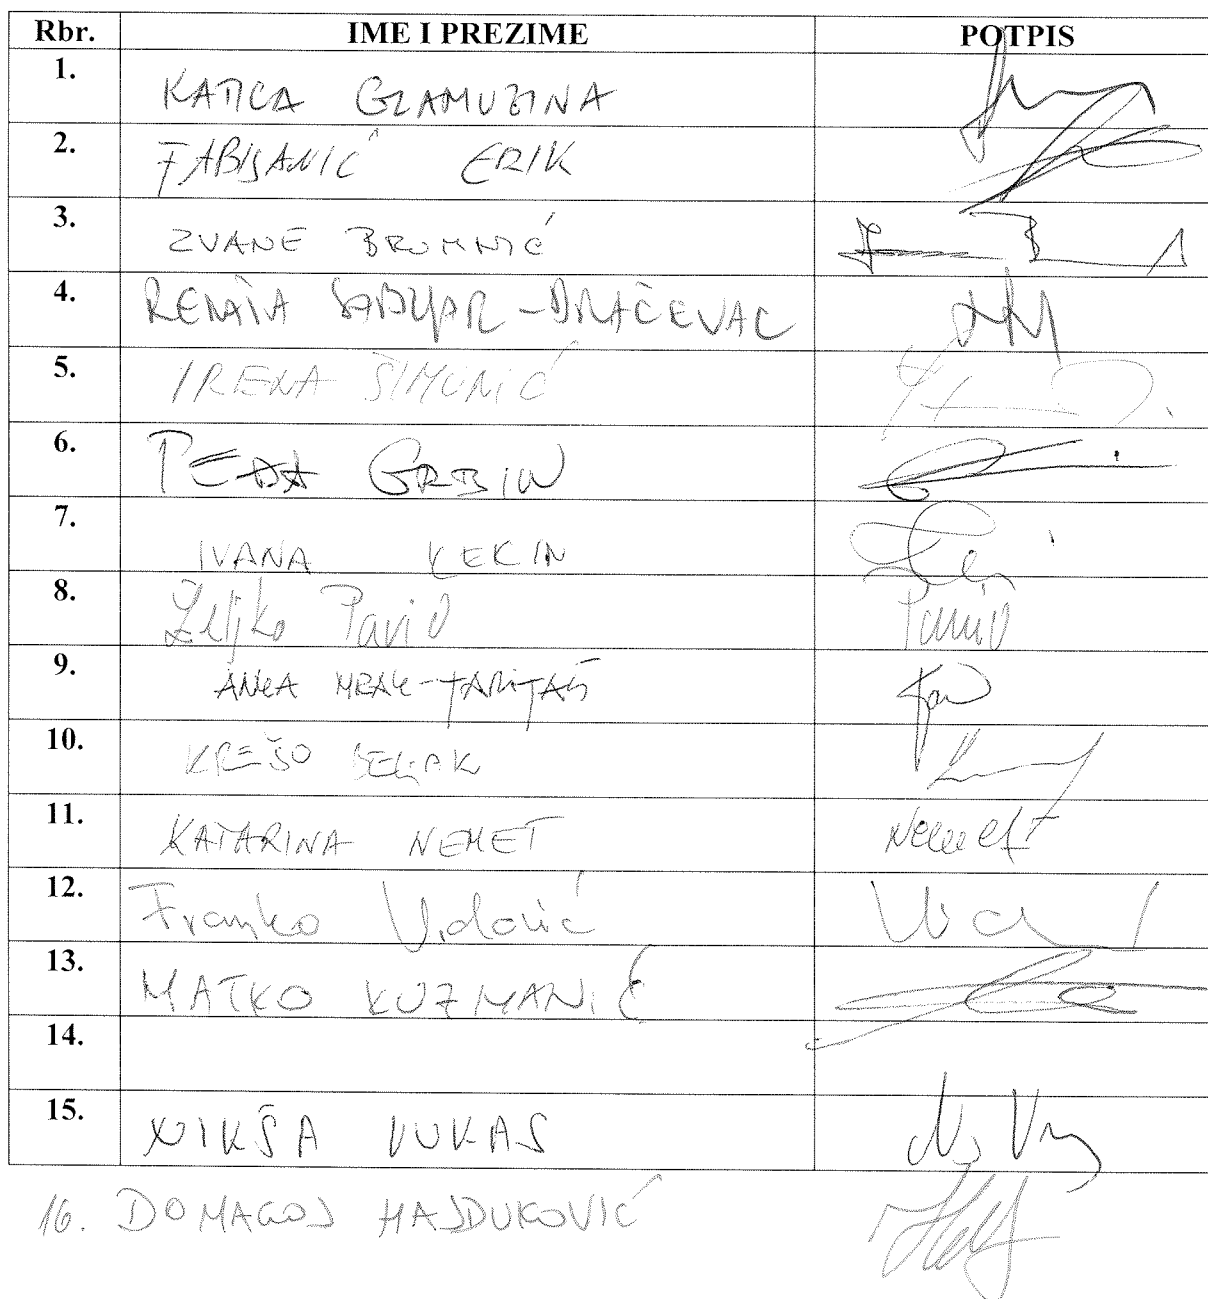 Rbr. IME I PREZIME POTPIS
1. KATICA GLAMUZINA
2. FABIJANIĆ ERIK
3. ZVANE BRUMNIĆ
4. RENATA SABLJAR-DRAČEVAC
5. IRENA ŠIMUNIĆ
6. PEĐA GRBIN
7. IVANA KEKIN
8. Željko Pavić Pavić
9. ANKA MRAK-TARITAŠ
10. KREŠO BELJAK
11. KATARINA NEMET Nemet
12. Franko Vidović
13. MATKO KUZMANIĆ
14.
15. NIKŠA VUKAS
16. DOMAGOJ HAJDUKOVIĆ